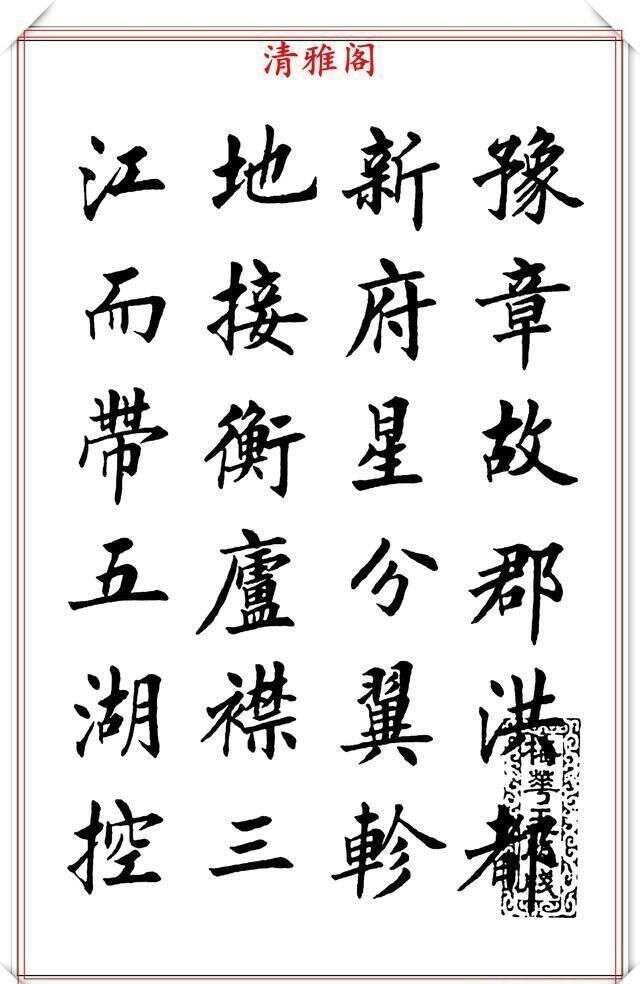 清雅阁
豫章故郡洪都
新府星分翼軫
地接衡廬襟三
江而帶五湖控